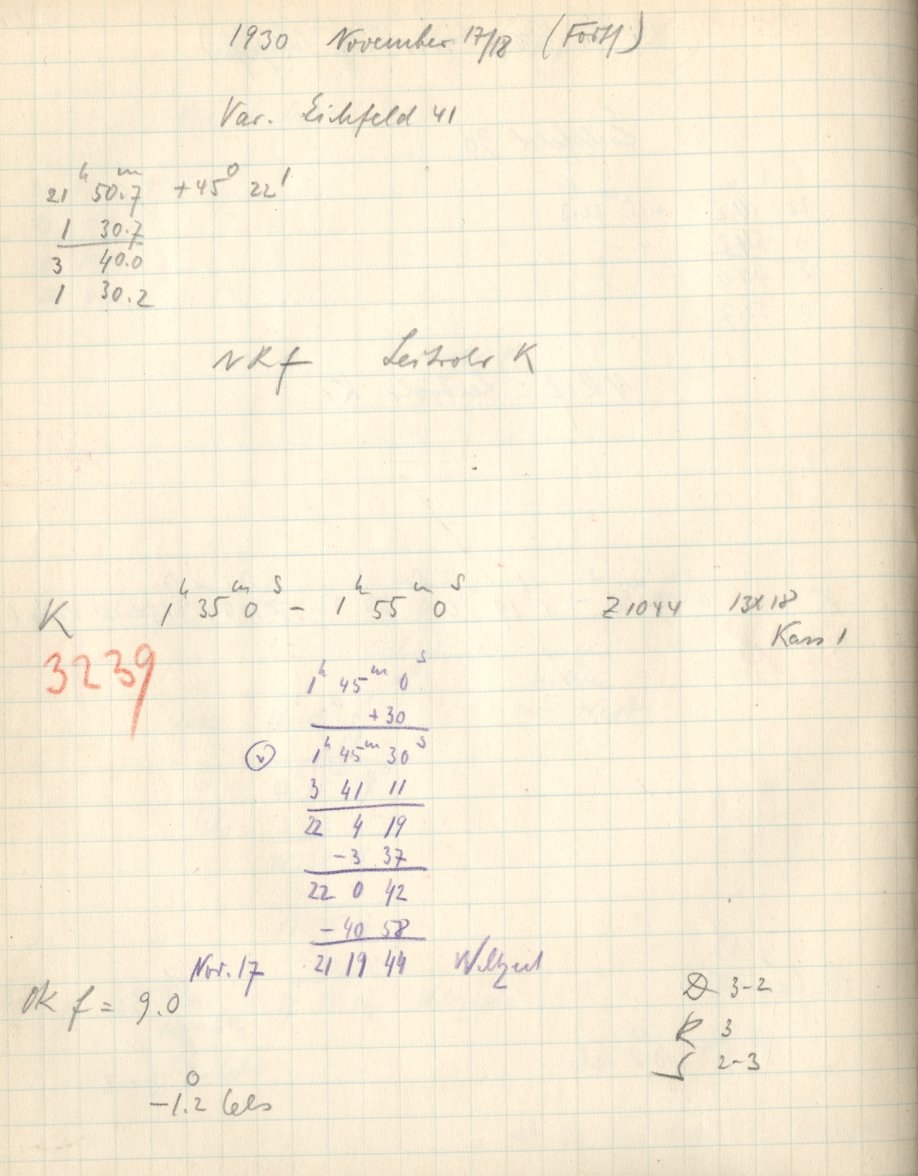 1930 November 17/18 (Forts)
Var. Eichfeld 41
21ʰ 50.7ᵐ +45° 22'
1 30.7
3 40.0
1 30.2
NRf Leitrohr K
K 1ʰ 35ᵐ 0ˢ – 1ʰ 55ᵐ 0ˢ Z 1044 13x18
Kass 1
3239
1ʰ 45ᵐ 0ˢ
+30
1ʰ 45ᵐ 30ˢ
3 41 11
22 4 19
–3 37
22 0 42
–40 58
Nov. 17 21 19 44 Weltzeit
OK f = 9.0
D 3-2
R 3
S 2-3
–1.2° Cels